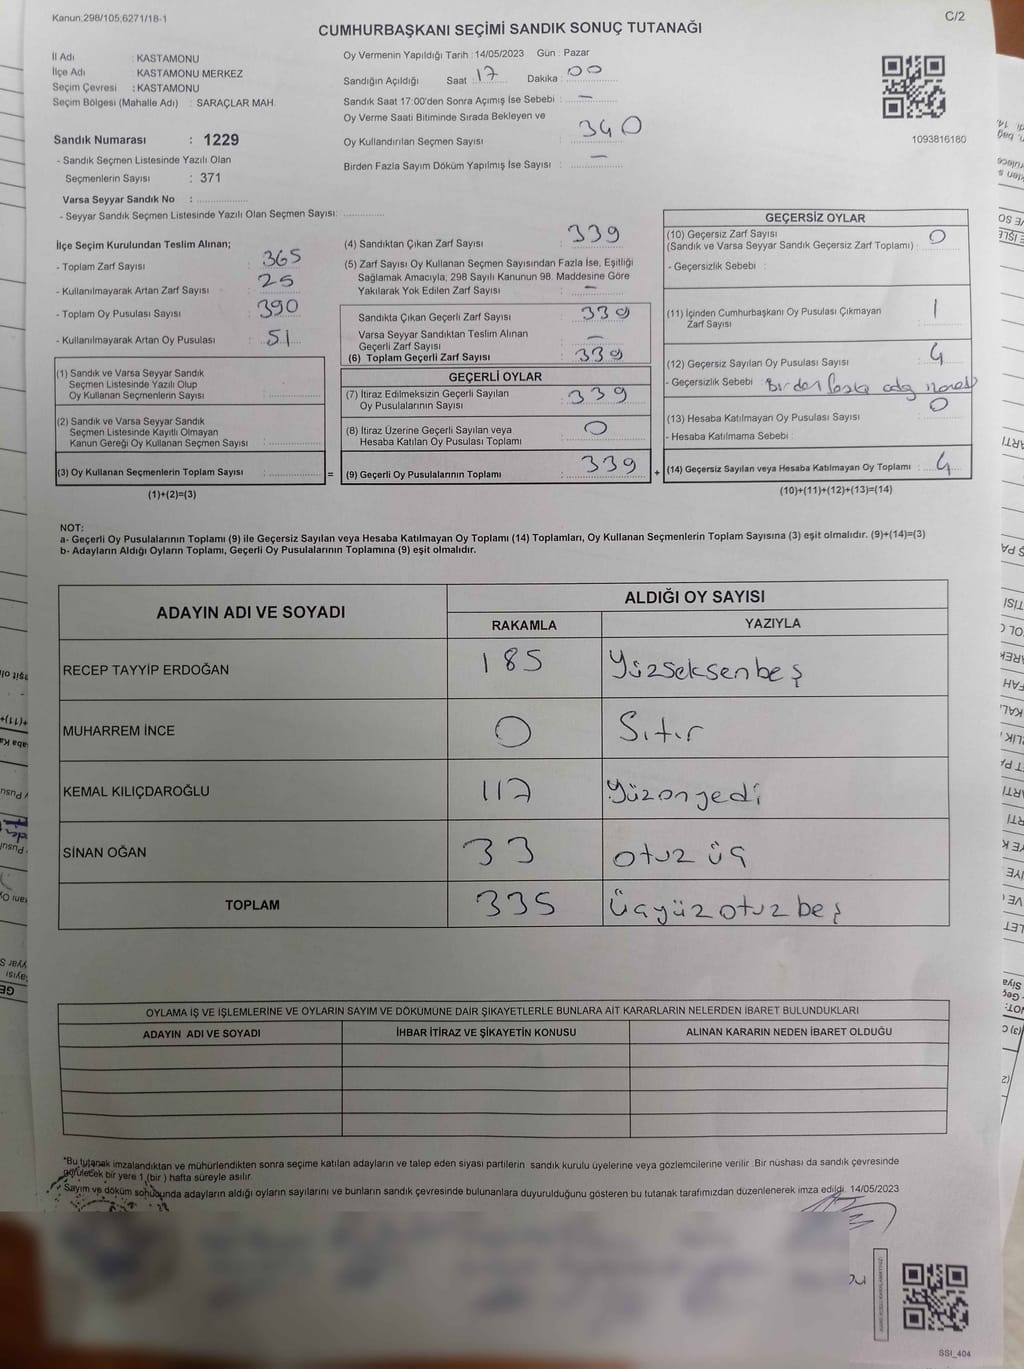 Kanun;298/105,6271/18-1
C/2
CUMHURBAŞKANI SEÇİMİ SANDIK SONUÇ TUTANAĞI
İl Adı : KASTAMONU
İlçe Adı : KASTAMONU MERKEZ
Seçim Çevresi : KASTAMONU
Seçim Bölgesi (Mahalle Adı) : SARAÇLAR MAH.
Sandık Numarası : 1229
- Sandık Seçmen Listesinde Yazılı Olan
Seçmenlerin Sayısı : 371
Varsa Seyyar Sandık No :
- Seyyar Sandık Seçmen Listesinde Yazılı Olan Seçmen Sayısı:
Oy Vermenin Yapıldığı Tarih : 14/05/2023 Gün : Pazar
Sandığın Açıldığı Saat : 17 Dakika : 00
Sandık Saat 17:00'den Sonra Açımış İse Sebebi : —
Oy Verme Saati Bitiminde Sırada Bekleyen ve
Oy Kullandırılan Seçmen Sayısı : 340
Birden Fazla Sayım Döküm Yapılmış İse Sayısı : —
1093816180
İlçe Seçim Kurulundan Teslim Alınan;
- Toplam Zarf Sayısı : 365
- Kullanılmayarak Artan Zarf Sayısı : 25
- Toplam Oy Pusulası Sayısı : 390
- Kullanılmayarak Artan Oy Pusulası : 51
(1) Sandık ve Varsa Seyyar Sandık
Seçmen Listesinde Yazılı Olup
Oy Kullanan Seçmenlerin Sayısı :
(2) Sandık ve Varsa Seyyar Sandık
Seçmen Listesinde Kayıtlı Olmayan
Kanun Gereği Oy Kullanan Seçmen Sayısı :
(3) Oy Kullanan Seçmenlerin Toplam Sayısı : =
(1)+(2)=(3)
(4) Sandıktan Çıkan Zarf Sayısı : 339
(5) Zarf Sayısı Oy Kullanan Seçmen Sayısından Fazla İse, Eşitliği
Sağlamak Amacıyla, 298 Sayılı Kanunun 98. Maddesine Göre
Yakılarak Yok Edilen Zarf Sayısı : —
Sandıkta Çıkan Geçerli Zarf Sayısı : 339
Varsa Seyyar Sandıktan Teslim Alınan
Geçerli Zarf Sayısı : —
(6) Toplam Geçerli Zarf Sayısı : 339
GEÇERLİ OYLAR
(7) İtiraz Edilmeksizin Geçerli Sayılan
Oy Pusulalarının Sayısı : 339
(8) İtiraz Üzerine Geçerli Sayılan veya
Hesaba Katılan Oy Pusulası Toplamı : 0
(9) Geçerli Oy Pusulalarının Toplamı : 339 +
GEÇERSİZ OYLAR
(10) Geçersiz Zarf Sayısı
(Sandık ve Varsa Seyyar Sandık Geçersiz Zarf Toplamı) : 0
- Geçersizlik Sebebi :
(11) İçinden Cumhurbaşkanı Oy Pusulası Çıkmayan
Zarf Sayısı : 1
(12) Geçersiz Sayılan Oy Pusulası Sayısı : 4
- Geçersizlik Sebebi : Birden fazla
(13) Hesaba Katılmayan Oy Pusulası Sayısı : 0
- Hesaba Katılmama Sebebi :
(14) Geçersiz Sayılan veya Hesaba Katılmayan Oy Toplamı : 4
(10)+(11)+(12)+(13)=(14)
NOT:
a- Geçerli Oy Pusulalarının Toplamı (9) ile Geçersiz Sayılan veya Hesaba Katılmayan Oy Toplamı (14) Toplamları, Oy Kullanan Seçmenlerin Toplam Sayısına (3) eşit olmalıdır. (9)+(14)=(3)
b- Adayların Aldığı Oyların Toplamı, Geçerli Oy Pusulalarının Toplamına (9) eşit olmalıdır.
ADAYIN ADI VE SOYADI
ALDIĞI OY SAYISI
RAKAMLA YAZIYLA
RECEP TAYYİP ERDOĞAN 185 Yüzseksenbeş
MUHARREM İNCE 0 Sıfır
KEMAL KILIÇDAROĞLU 117 Yüzonyedi
SİNAN OĞAN 33 otuz üç
TOPLAM 335 Üçyüzotuzbeş
OYLAMA İŞ VE İŞLEMLERİNE VE OYLARIN SAYIM VE DÖKÜMÜNE DAİR ŞİKAYETLERLE BUNLARA AİT KARARLARIN NELERDEN İBARET BULUNDUKLARI
ADAYIN ADI VE SOYADI İHBAR İTİRAZ VE ŞİKAYETİN KONUSU ALINAN KARARIN NEDEN İBARET OLDUĞU
"Bu tutanak imzalandıktan ve mühürlendikten sonra seçime katılan adayların ve talep eden siyasi partilerin sandık kurulu üyelerine veya gözlemcilerine verilir Bir nüshası da sandık çevresinde
görülecek bir yere 1 (bir) hafta süreyle asılır.
Sayım ve döküm sonucunda adayların aldığı oyların sayılarını ve bunların sandık çevresinde bulunanlara duyurulduğunu gösteren bu tutanak tarafımızdan düzenlenerek imza edildi. 14/05/2023
SSI_404